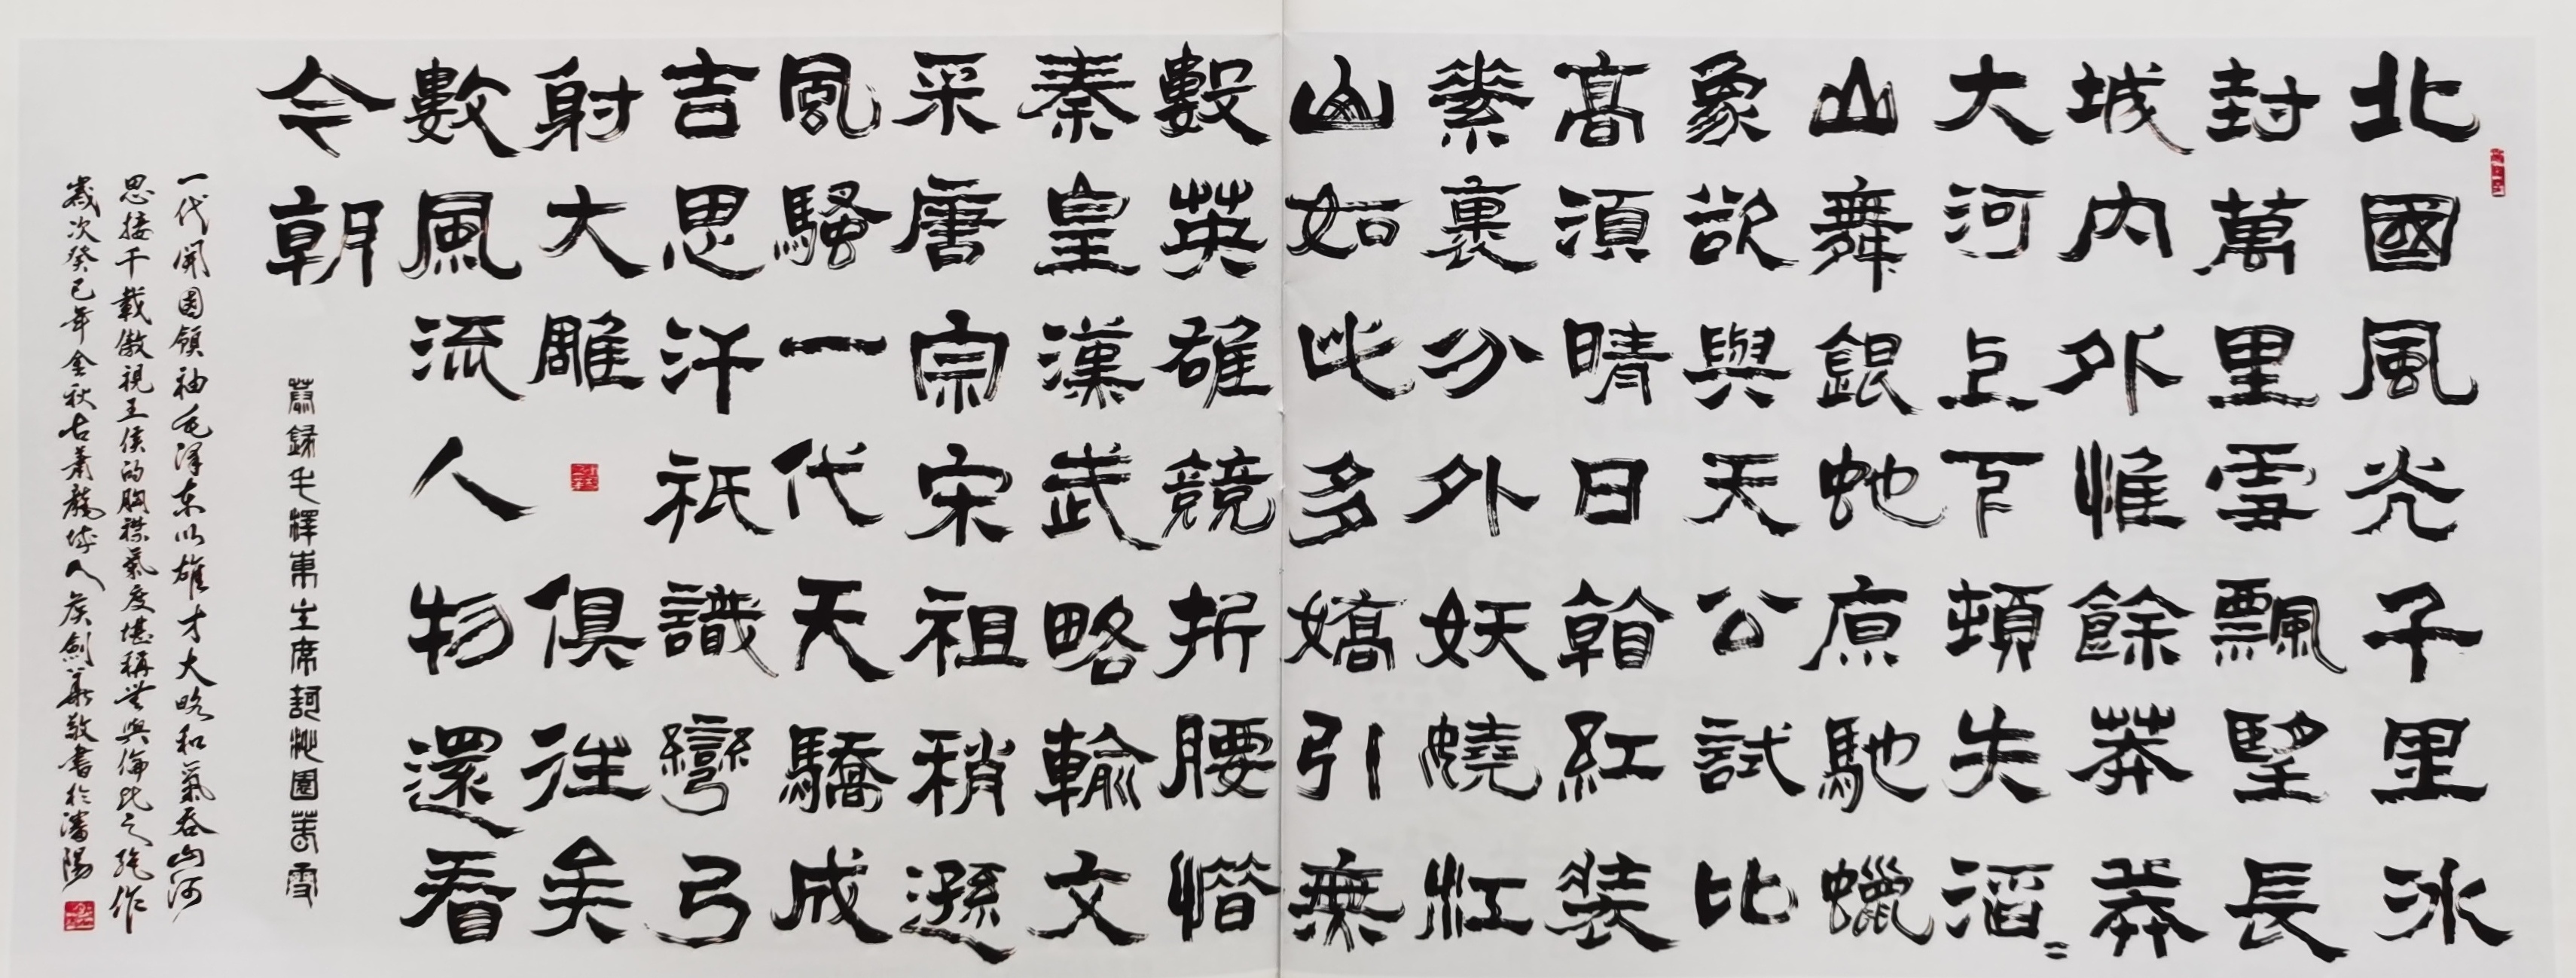 北國風光千里冰
封萬里雪飄望長
城內外惟餘莽莽
大河上下頓失滔〻
山舞銀蛇原馳蠟
象欲與天公試比
高須晴日看紅裝
素裹分外妖嬈江
山如此多嬌引無
數英雄競折腰惜
秦皇漢武略輸文
采唐宗宋祖稍遜
風騷一代天驕成
吉思汗祇識彎弓
射大雕俱往矣
數風流人物還看
今朝
恭錄毛澤東主席詞沁園春雪
一代開國領袖毛澤東以雄才大略和氣吞山河
思接千載傲視王侯的胸襟氣度堪稱無與倫比之絕作
歲次癸巳年金秋古蕭龍城人侯劍華敬書於瀋陽